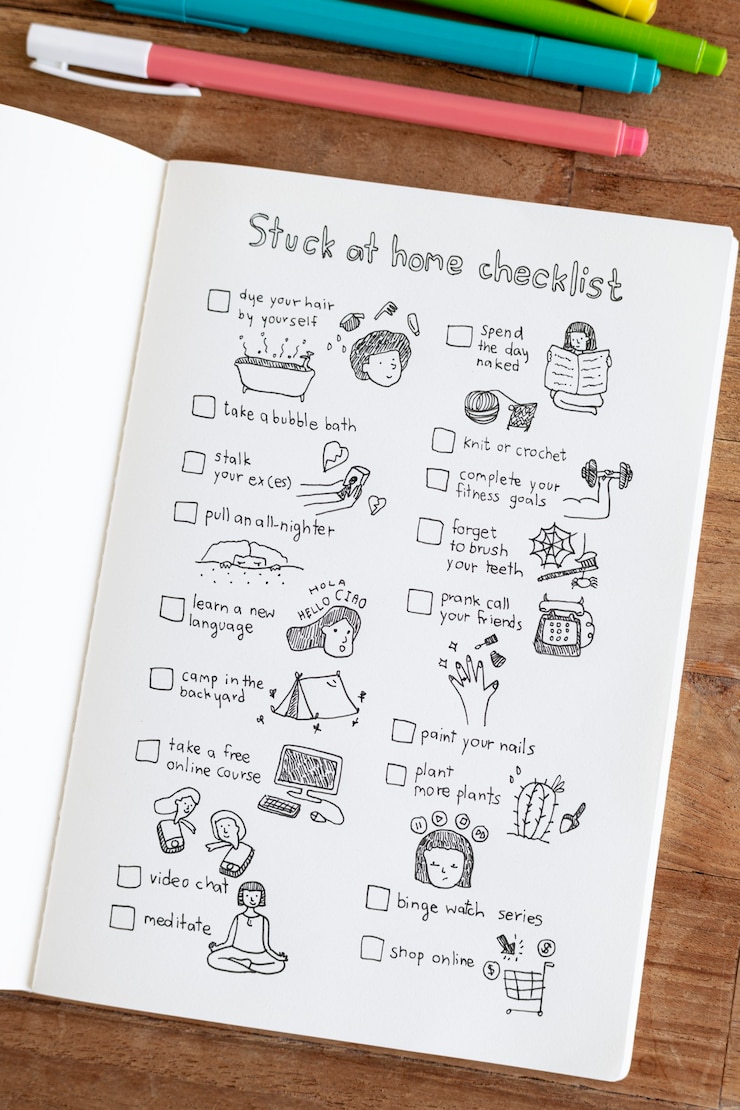 Stuck at home checklist
dye your hair
by yourself
take a bubble bath
stalk
your ex(es)
pull an all-nighter
learn a new
language
HOLA
HELLO CIAO
camp in the
backyard
take a free
online course
video chat
meditate
spend
the day
naked
knit or crochet
complete your
fitness goals
forget
to brush
your teeth
prank call
your friends
paint your nails
plant
more plants
binge watch series
shop online
$
$